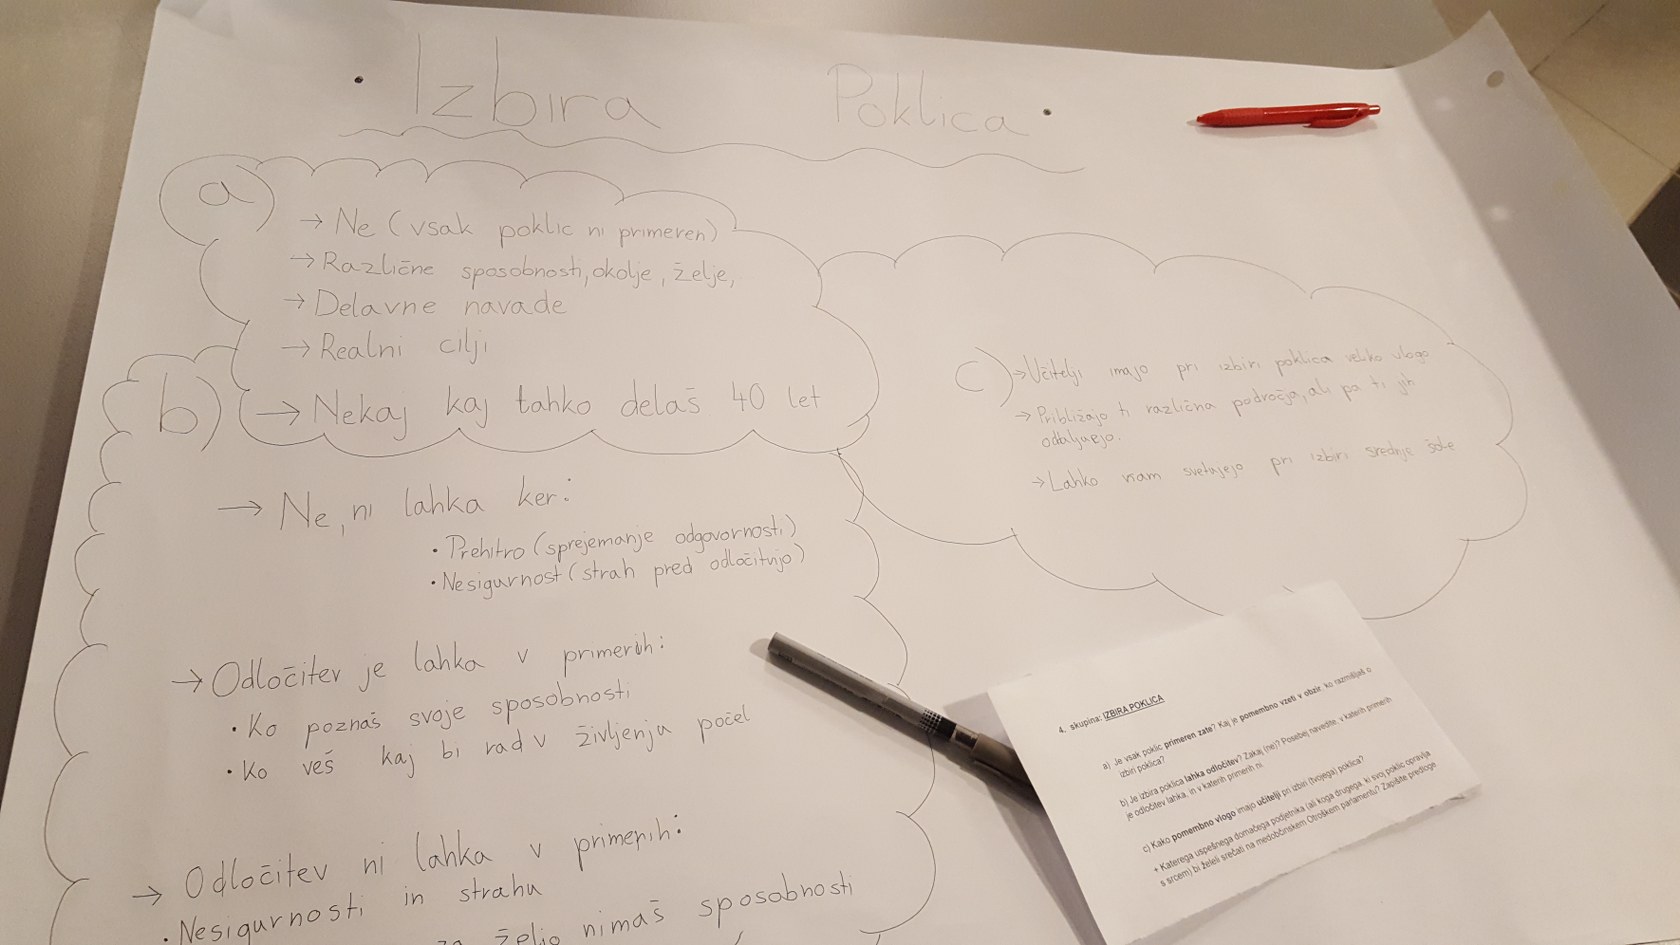 Izbira Poklica
a)
→ Ne (vsak poklic ni primeren)
→ Različne sposobnosti, okolje, želje,
→ Delavne navade
→ Realni cilji
→ Nekaj kaj lahko delaš 40 let
b)
→ Ne, ni lahka ker:
• Prehitro (sprejemanje odgovornosti)
• Nesigurnost (strah pred odločitvijo)
→ Odločitev je lahka v primerih:
• Ko poznaš svoje sposobnosti
• Ko veš kaj bi rad v življenju počel
→ Odločitev ni lahka v primerih:
• Nesigurnosti in strahu
želijo nimaš sposobnosti
c) → Učitelji imajo pri izbiri poklica veliko vlogo
→ Približajo ti različna področja, ali pa ti jih
odaljujejo.
→ Lahko nam svetujejo pri izbiri srednje šole
4. skupina: IZBIRA POKLICA
a) Je vsak poklic primeren zate? Kaj je pomembno vzeti v obzir, ko razmišljaš o
izbiri poklica?
b) Je izbira poklica lahka odločitev? Zakaj (ne)? Posebej navedite, v katerih primerih
je odločitev lahka, in v katerih primerih ni.
c) Kako pomembno vlogo imajo učitelji pri izbiri (tvojega) poklica?
+ Katerega uspešnega domačega podjetnika (ali koga drugega, ki svoj poklic opravlja
s srcem) bi želeli srečati na medobčinskem Otroškem parlamentu? Zapišite predloge